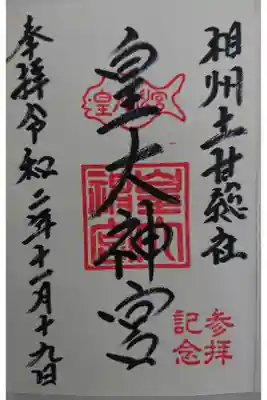 相州土甘総社
皇大神宮
皇大神宮
参拝
記念
奉拝令和二年十一月十九日